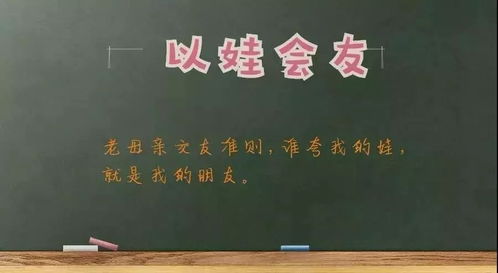 以娃会友
老母亲交友准则，谁夸我的娃，
就是我的朋友。